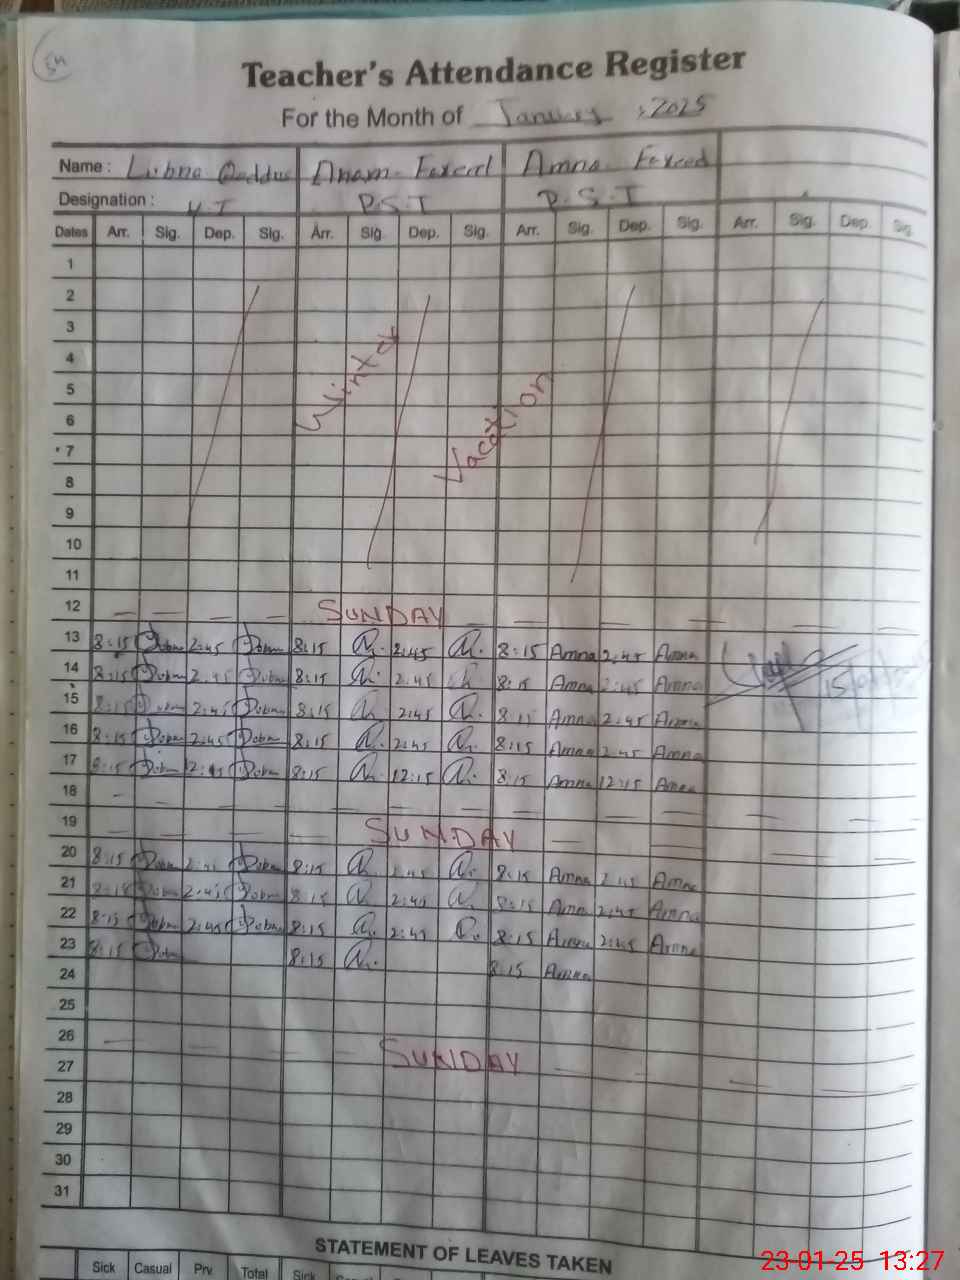 Teacher's Attendance Register
For the Month of January, 2025
Name : Lubna Anam Fareed Amna Fareed
Designation : P.S.T P.S.T
Dates Arr. Sig. Dep. Sig. Arr. Sig. Dep. Sig. Arr. Sig. Dep. Sig. Arr. Sig. Dep. Sig.
1
2
3
4
5
6
7
8
9
10
11
Winter
Vacation
12 SUNDAY
13 8:15 2:45 8:15 2:45 8:15 Amna 2:45 Amna
14 8:15 2:45 8:15 2:45 8:15 Amna 2:45 Amna
15 8:15 2:45 8:15 2:45 8:15 Amna 2:45 Amna
16 8:15 2:45 8:15 2:45 8:15 Amna 2:45 Amna
17 8:15 8:15 12:15 8:15 Amna 12:15 Amna
18
19 SUNDAY
20 8:15 2:45 8:15 2:45 8:15 Amna 2:45 Amna
21 8:15 2:45 8:15 2:45 8:15 Amna 2:45 Amna
22 8:15 2:45 8:15 2:45 8:15 Amna 2:45 Amna
23 8:15 8:15 8:15 Amna
24
25
26 SUNDAY
27
28
29
30
31
STATEMENT OF LEAVES TAKEN
Sick Casual Prv. Total Sick
23-01-25 13:27